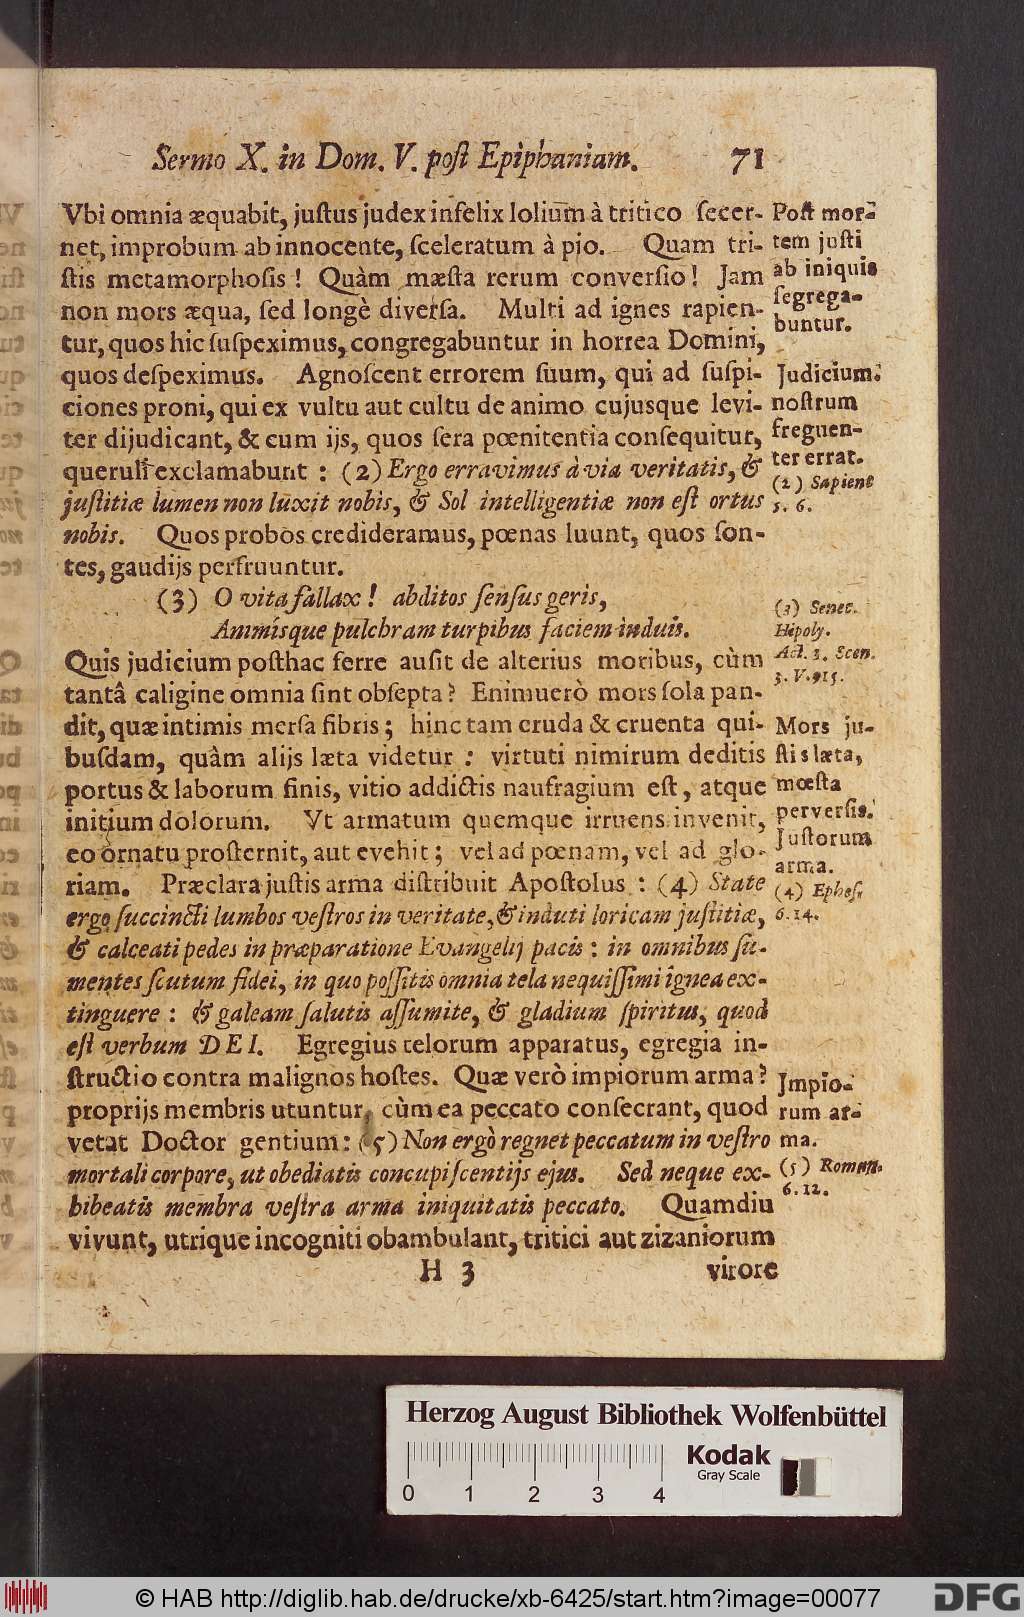 Sermo X. in Dom. V. poſt Epiphaniam. 71
Vbi omnia æquabit, juſtus judex infelix lolium à tritico ſecer-
net, improbum ab innocente, ſceleratum à pio. Quam tri-
ſtis metamorphoſis! Quàm mæſta rerum converſio! Jam
non mors æqua, ſed longè diverſa. Multi ad ignes rapien-
tur, quos hic ſuſpeximus, congregabuntur in horrea Domini,
quos deſpeximus. Agnoſcent errorem ſuum, qui ad ſuſpi-
ciones proni, qui ex vultu aut cultu de animo cujusque levi-
ter dijudicant, & cum ijs, quos ſera pœnitentia conſequitur,
queruli exclamabunt: (2) Ergo erravimus à via veritatis, &
juſtitiæ lumen non luxit nobis, & Sol intelligentiæ non eſt ortus
nobis. Quos probos credideramus, pœnas luunt, quos ſon-
tes, gaudijs perfruuntur.
(3) O vita fallax! abditos ſenſus geris,
Animisque pulchram turpibus faciem induis.
Quis judicium poſthac ferre auſit de alterius moribus, cùm
tantâ caligine omnia ſint obſepta? Enimuerò mors ſola pan-
dit, quæ intimis merſa fibris; hinc tam cruda & cruenta qui-
buſdam, quàm alijs læta videtur: virtuti nimirum deditis
portus & laborum finis, vitio addictis naufragium eſt, atque
initium dolorum. Vt armatum quemque irruens invenit,
eo ornatu proſternit, aut evehit; vel ad pœnam, vel ad glo-
riam. Præclara juſtis arma diſtribuit Apoſtolus: (4) State
ergo ſuccincti lumbos veſtros in veritate, & induti loricam juſtitiæ,
& calceati pedes in præparatione Evangelij pacis: in omnibus ſu-
mentes ſcutum fidei, in quo poſſitis omnia tela nequiſſimi ignea ex-
tinguere: & galeam ſalutis aſſumite, & gladium ſpiritus, quod
eſt verbum DEI. Egregius telorum apparatus, egregia in-
ſtructio contra malignos hoſtes. Quæ verò impiorum arma?
proprijs membris utuntur, cùm ea peccato conſecrant, quod
vetat Doctor gentium: (5) Non ergò regnet peccatum in veſtro
mortali corpore, ut obediatis concupiſcentijs ejus. Sed neque ex-
hibeatis membra veſtra arma iniquitatis peccato. Quamdiu
vivunt, utrique incogniti obambulant, tritici aut zizaniorum
H 3 virore
Poſt mor-
tem juſti
ab iniquis
ſegrega-
buntur.
Judicium
noſtrum
frequen-
ter errat.
(2) Sapient
5. 6.
(3) Senec.
Hipoly.
Act. 3. Scen.
3. V. 915.
Mors ju-
ſtis læta,
mœſta
perverſis.
Juſtorum
arma.
(4) Epheſ.
6. 14.
Jmpio-
rum ar-
ma.
(5) Roman.
6. 12.
Herzog August Bibliothek Wolfenbüttel
Kodak
Gray Scale
0 1 2 3 4
© HAB http://diglib.hab.de/drucke/xb-6425/start.htm?image=00077
DFG